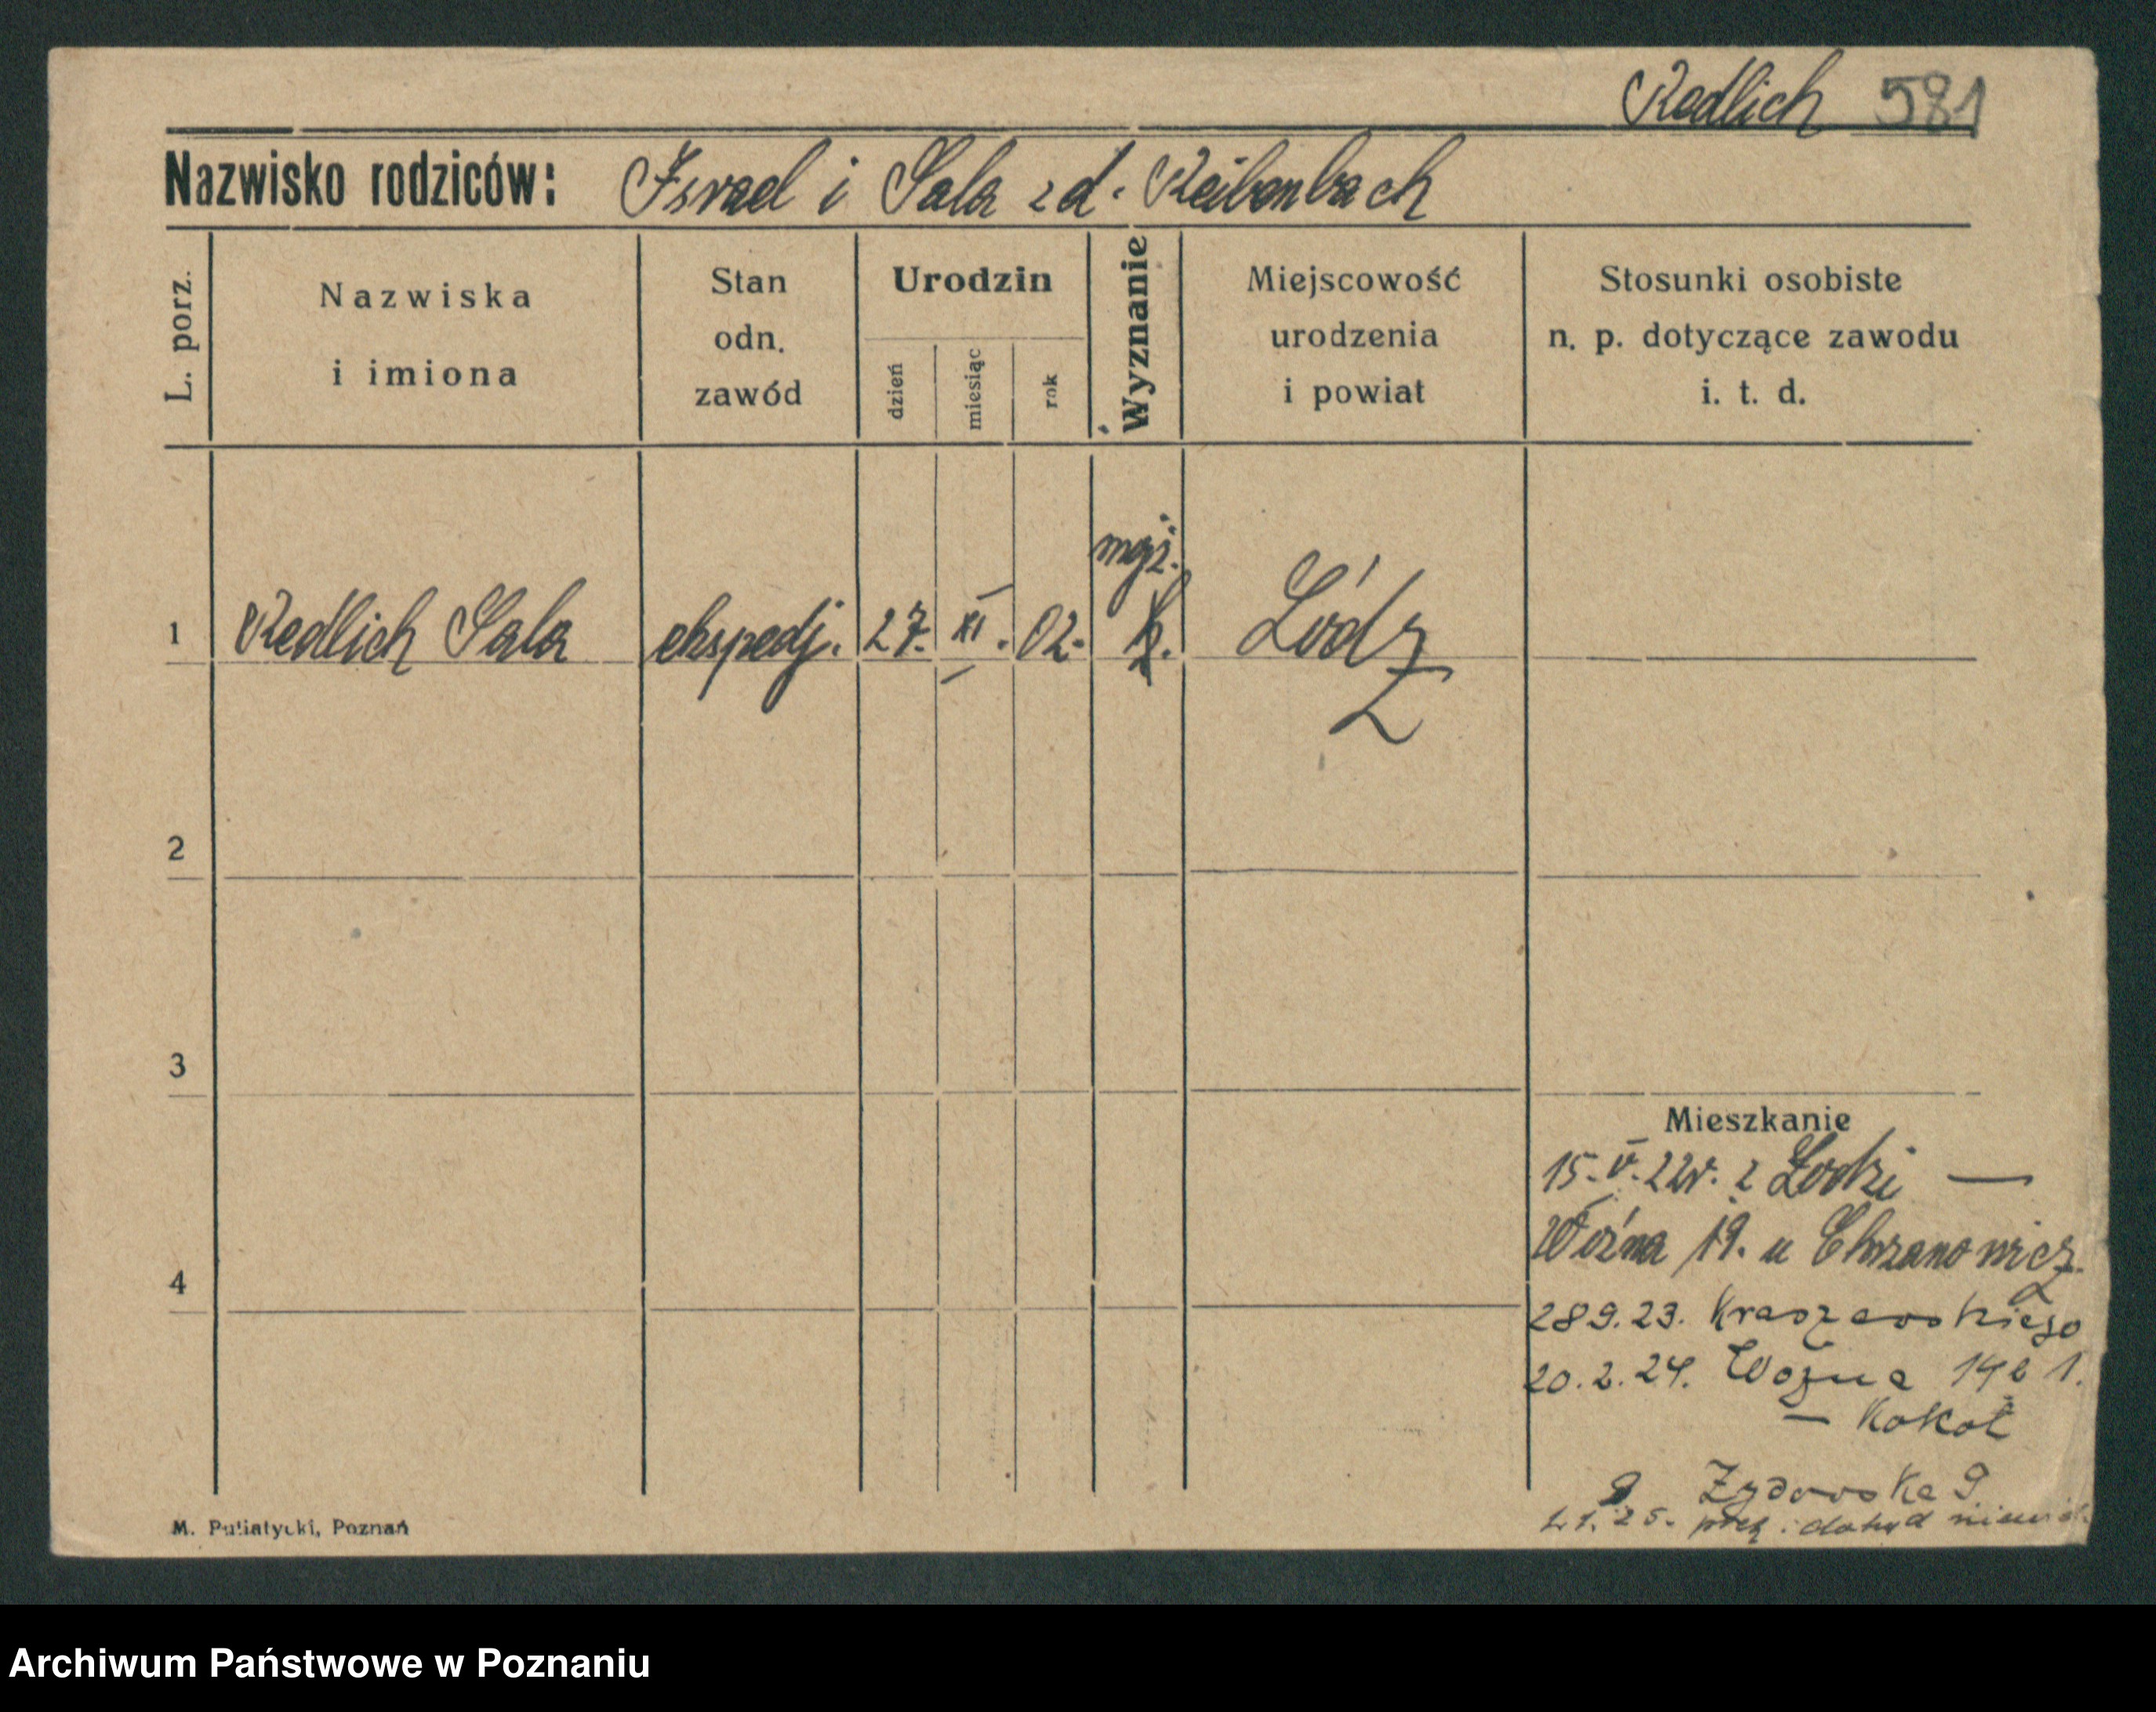 Redlich 581
Nazwisko rodziców: Israel i Sala zd. Reibenbach
L. porz.
Nazwiska
i imiona
Stan
odn.
zawód
Urodzin
dzień
miesiąc
rok
Wyznanie
Miejscowość
urodzenia
i powiat
Stosunki osobiste
n. p. dotyczące zawodu
i. t. d.
mojż.
1 Redlich Sala ekspedj. 27. XI. 02. k. Łódz
2
3
Mieszkanie
15. V. 22r. z Łodzi —
Woźna 19. u Chrzanowicz
4
28 9. 23. Kraszewskiego
20. 2. 24. Wozna 14b 1.
— Kokot
Zydowska 9
25. dotąd
M. Putiatycki, Poznań
Archiwum Państwowe w Poznaniu